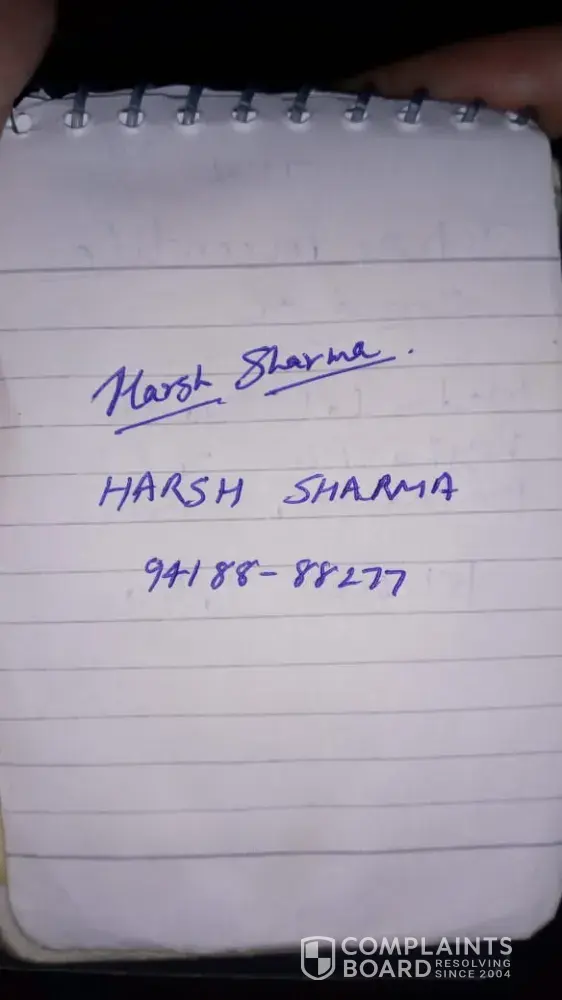 Harsh Sharma.
HARSH SHARMA
94188-88277
COMPLAINTS
BOARD RESOLVING
SINCE 2004